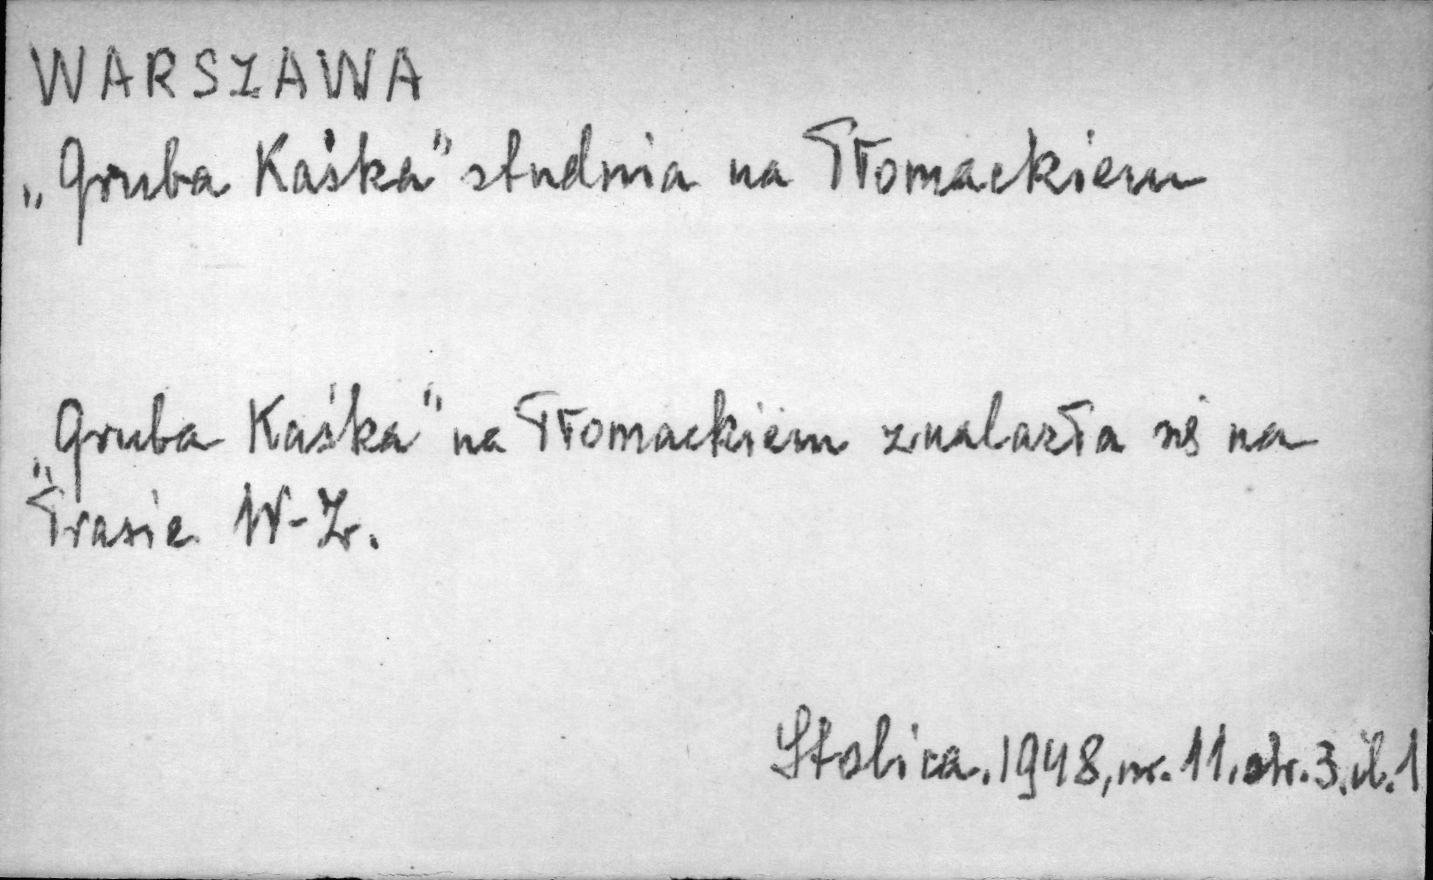 WARSZAWA
„Gruba Kaśka" studnia na Tłomackiem
„Gruba Kaśka" na Tłomackiem znalazła się na
Trasie W-Z.
Stolica. 1948, nr. 11. str. 3. il. 1